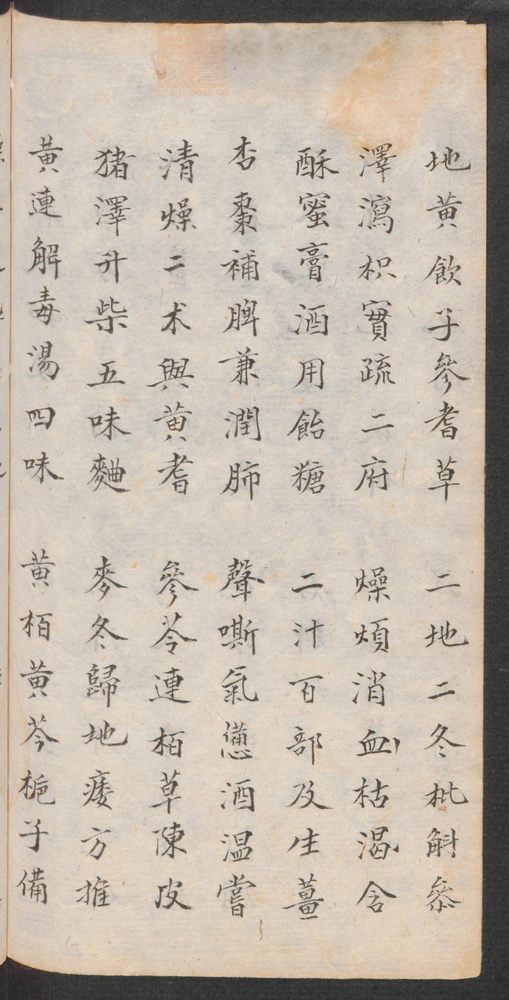 地黄飲子參耆草　二地二冬枇斛參
澤瀉枳實疏二府　燥煩消血枯渴含
酥蜜膏酒用飴糖　二汁百部及生薑
杏棗補脾兼潤肺　聲嘶氣憊酒温嘗
清燥二术與黄耆　參苓連栢草陳皮
猪澤升柴五味麯　麥冬歸地痿方推
黄連解毒湯四味　黄栢黄芩梔子備